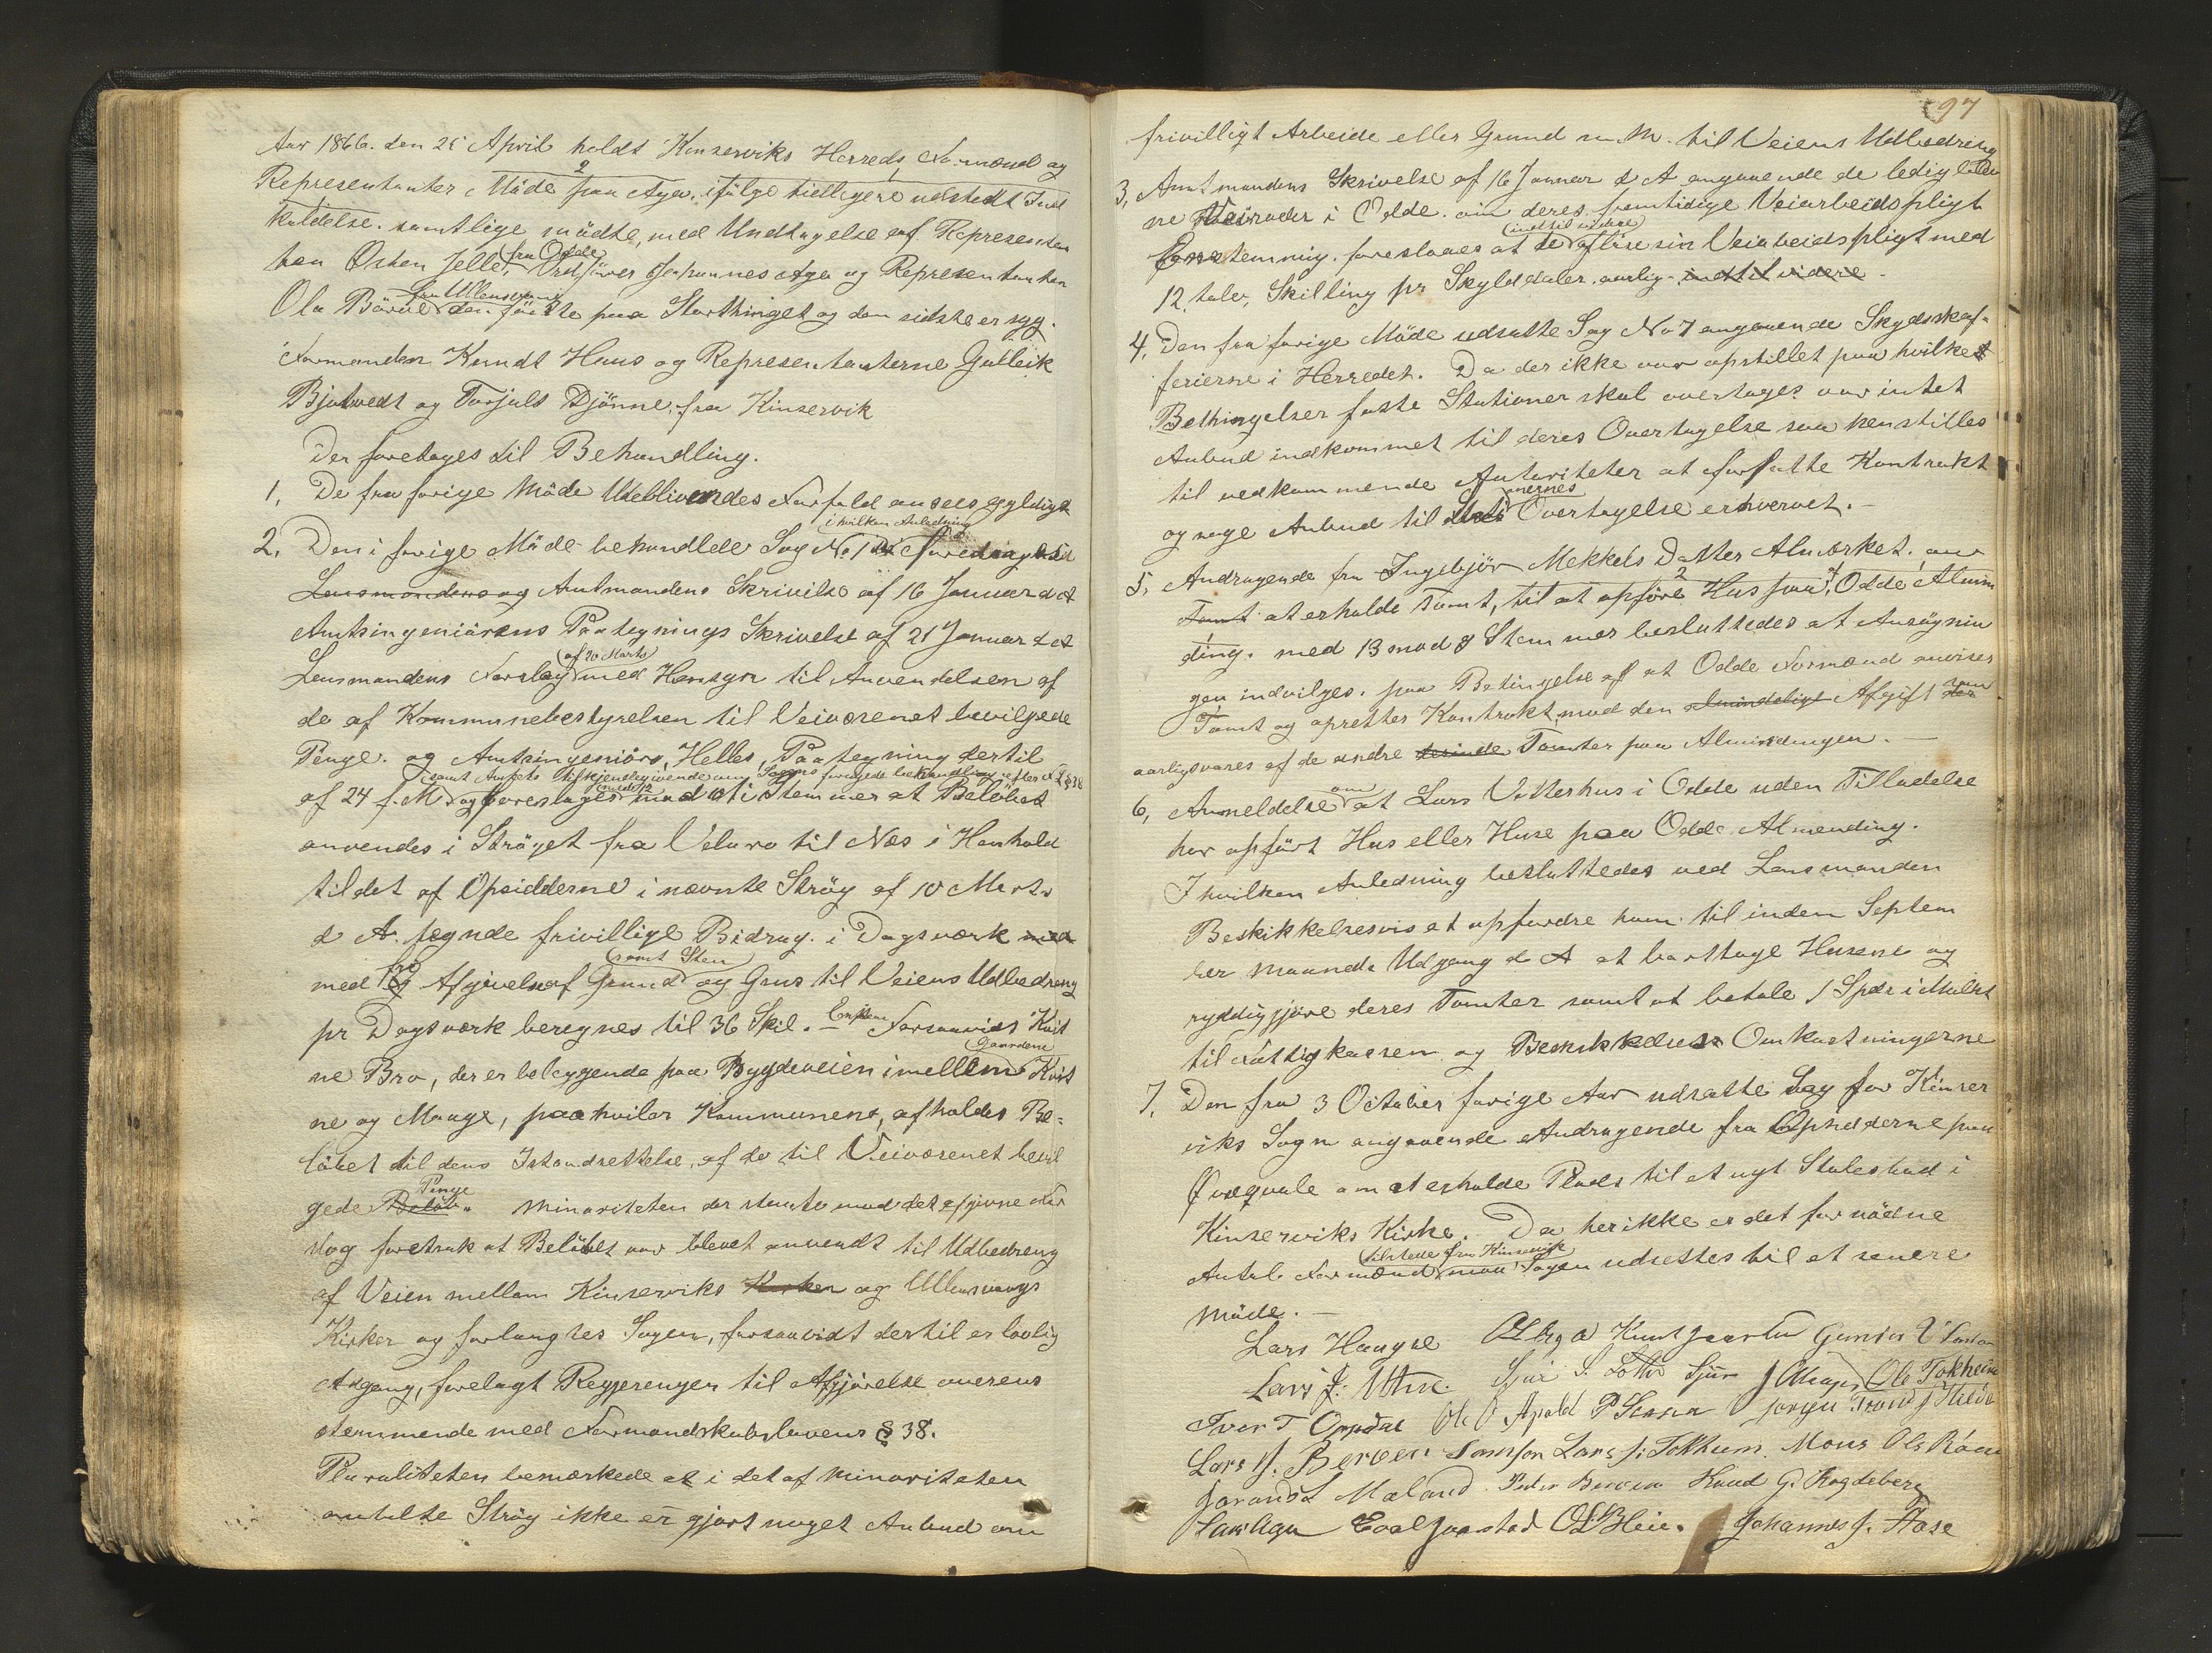 Aar 1866. den 25 April holdt Kinserviks Herreds Formænd og
Representanter Möde paa Aga, ifölge tidligere udstedt Ind
kaldelse. samtlige mödte, med Undtagelse af Representan
ten Osten Jelle, fra Odde Ordförer Johannes Aga og Representanten
Ola Börve fra Ullensvang den förste paa Storthinget og den sidste er syg.
Formanden Knudt Huus og Representanterne Gulleik
Bjotvedt og Torjuls Djönne, fra Kinservik
Der foretages til Behandling.
1, De fra forige Möde Udeblivendes Forfald ansees gyldigt
2, Den i forige Möde behandlede Sag No 1 i hvilken Anledning foredrages
Lensmandens og Amtmandens Skrivelse af 16 Januar d A
Amtsingeniörens Paategnings Skrivelse af 21 Januar d A
Lensmandens Forslag af 20 Marts med Hensyn til Anvendelsen af
de af Kommunebestyrelsen til Veivæsenet bevilgede
Penge. og Amtsingeniörs, Helles, Paategning dertil
af 24 f. M og foreslages mod ti Stemmer at Belöbet
anvendes i Ströget fra Velure til Næs i Henhold
til det af Opsidderne i nævnte Strög af 10 Marts
d A. tegnde frivillige Bidrag. i Dagsværk med
med fri Afgivelse af Grund samt Sten og Grus til Veiens Udbedreng
pr Dagsværk beregnes til 36 Skil. Forsaavidt Kvit
ne Bro, der er beleggende paa Bygdeveien imellem Gaardene Kvit
ne og Mauge, paahviler Kommunene, afholdes Be-
löbet til dens Istandsettelse, af de til Veivæsenet bevil
gede Belöb Penge. Minoriteten der stemte mod det afgivne For
slag foretrak at Belöbet var blevet anvendt til Udbedreng
af Veien mellem Kinserviks Kirken og Ullensvangs
Kirker og forlangtes Sagen, forsaavidt dertil er lovlig
Adgang, forelagt Regjerengen til Afgjörelse overens
stemmende med Formandskabslovens § 38.
Pluraliteten bemærkede at i det af Minoriteten
omtalte Strög ikke er gjort noget Anbud om
97
frivilligt Arbeide eller Grund m. M. til Veiens Udbedreng
3, Amtmandens Skrivelse af 16 Januar d A angaaende de ledigblev
ne Veiroder i Odde. om deres framtidige Veiarbeidspligt
Enstemmig. foreslaaes at de indtil videre aflöse sin Veiarbeidspligt med
12. tolv, Skilling pr Skylddaler aarlig. indtil videre.
4, Den fra forige Möde udsatte Sag No 7 angaaende Skydsskaf-
ferierne i Herredet. Da der ikke var opstillet paa hvilket
Bethingelser faste Stationer skal overtages var intet
Anbud indkommet til deres Overtagelse saa henstilles
til vedkommende Autoriteter at forfatte Kontrakt
og søge Anbud til Overtagelse erhvervet.
5, Andragende fra Ingebjör Mekkels Datter Almerket. om
Tomt at erholde Tomt, til at opföre Hus paa Odde Almin
ding. med 13 mod 8 Stemmer besluttedes at Ansögnin
gen indvilges. paa Betingelse af at Odde Formænd anviser
Tomt og opretter Kontrakt mod den almindelige Afgift som
aarlig svares af de andre Tomter paa Almindingen.
6, Anmeldelse om at Lars Vetterhus i Odde uden Tilladelse
har opfört Hus eller Huse paa Odde Almending.
I hvilken Anledning besluttedes ved Lensmanden
Beskikkelsesvis at opfordre ham til inden Septem
ber Maaneds Udgang d A at borttage Husene og
ryddiggjöre deres Tomter samt at betale 1 Spdr i Mulkt
til Fattigkassen og Beskikkelses Omkostningerne
7, Den fra 3 October forige Aar udsatte Sag for Kinser
viks Sogn angaaende Andragende fra Opsidderne paa
Qvæqvale om at erholde Plads til et nyt Stolestad i
Kinserviks Kirke. Da her ikke er det for nödne
Antal Formænd tilstede fra Kinservik maa Sagen udsettes til et senere
Möde.
Lars Haugse O L Aga Knut
Lars J. Utne. Sjur S. Lothe Ole Tokheim
Ivar T Oppdal Ole O Apold
Lars Berven Lars J. Tokheim Mons Ols
Maland Peder Berven Knud G.
O L Heie. Johannes J. Aase